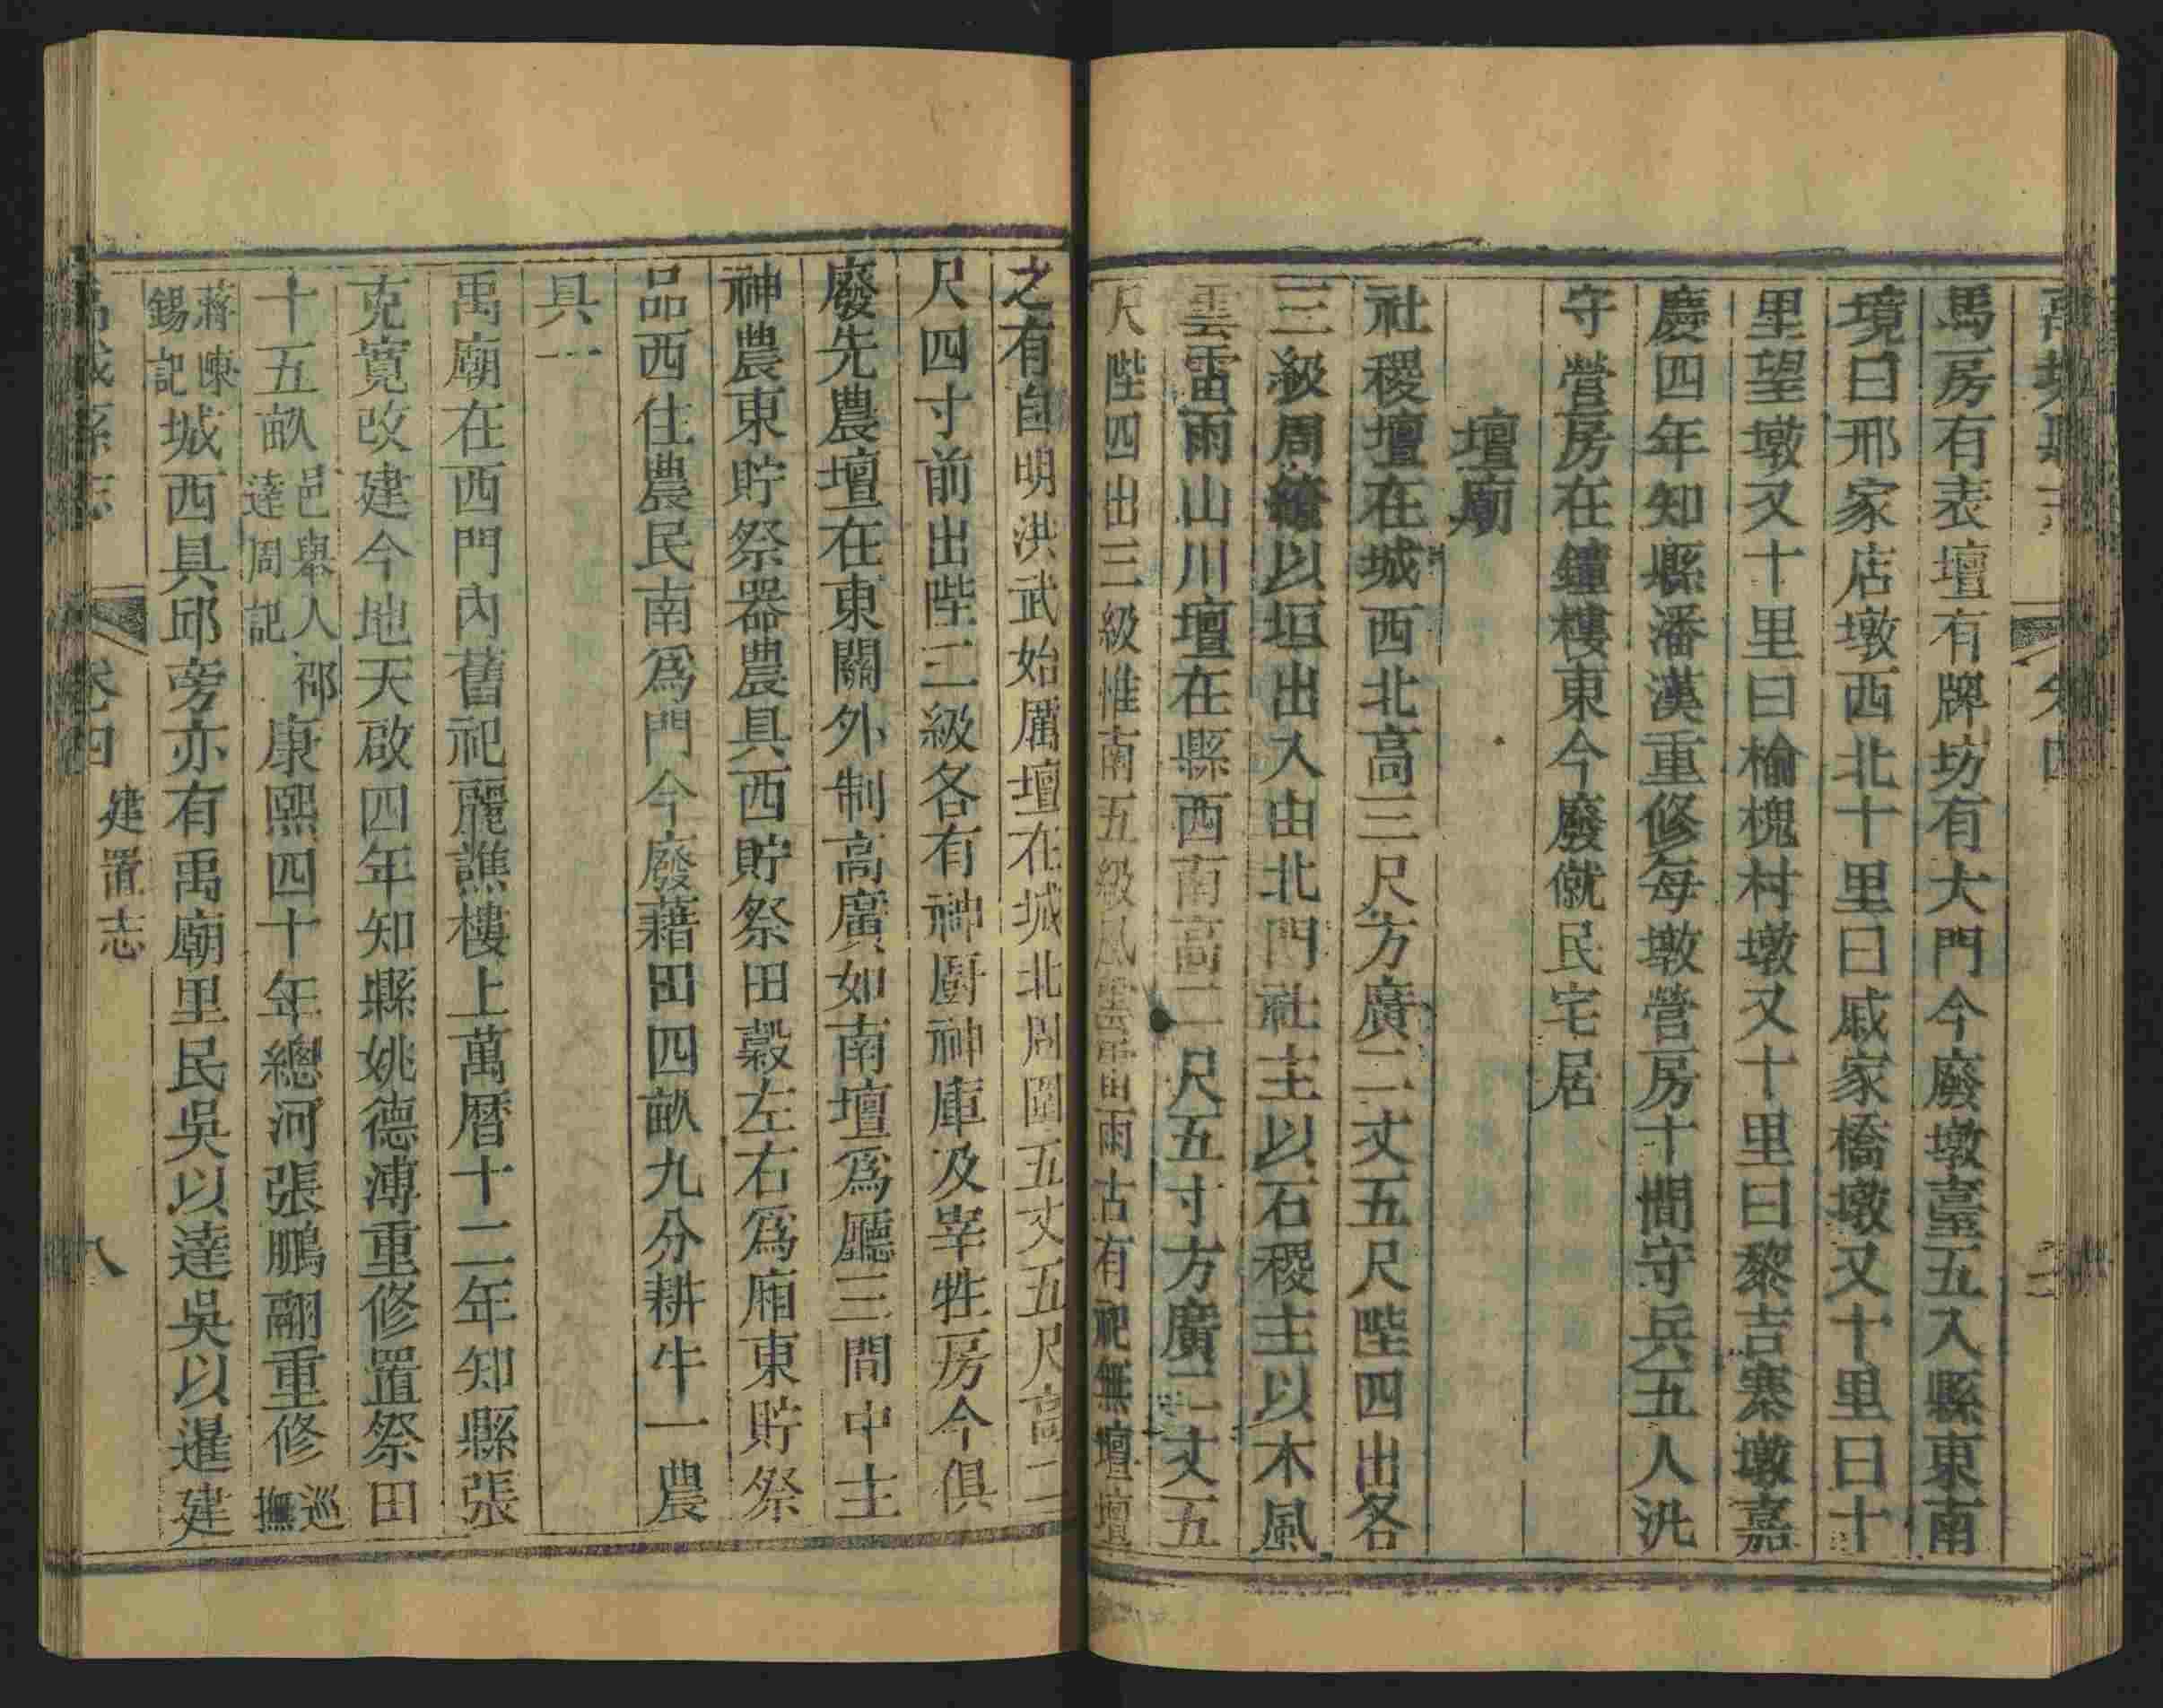 馬房有表壇有牌坊有大門今廢墩臺五入縣東南
境曰邢家店墩西北十里曰戚家橋墩又十里曰十
里望墩又十里曰榆槐村墩又十里曰黎吉寨墩嘉
慶四年知縣潘漢重修每墩營房十間守兵五人汛
守營房在鐘樓東今廢僦民宅居
壇廟
社稷壇在城西北高三尺方廣二丈五尺陛四出各
三級周繚以垣出入由北門社主以石稷主以木風
雲雷雨山川壇在縣西南高二尺五寸方廣二丈五
尺陛四出三級惟南五級風雲雷雨古有祀無壇壇
之有自明洪武始厲壇在城北周圍五丈五尺高二
尺四寸前出陛三級各有神廚神庫及宰牲房今俱
廢先農壇在東關外制高廣如南壇爲廳三間中主
神農東貯祭器農具西貯祭田穀左右爲廂東貯祭
品西住農民南爲門今廢藉田四畝九分耕牛一農
具一
禹廟在西門內舊祀麗譙樓上萬曆十二年知縣張
克寬改建今地天啟四年知縣姚德溥重修置祭田
十五畝邑舉人祁達周記康熙四十年總河張鵬翮重修巡撫
蔣陳錫記城西具邱旁亦有禹廟里民吳以達吳以暹建
禹城縣志 卷四 建置志 八